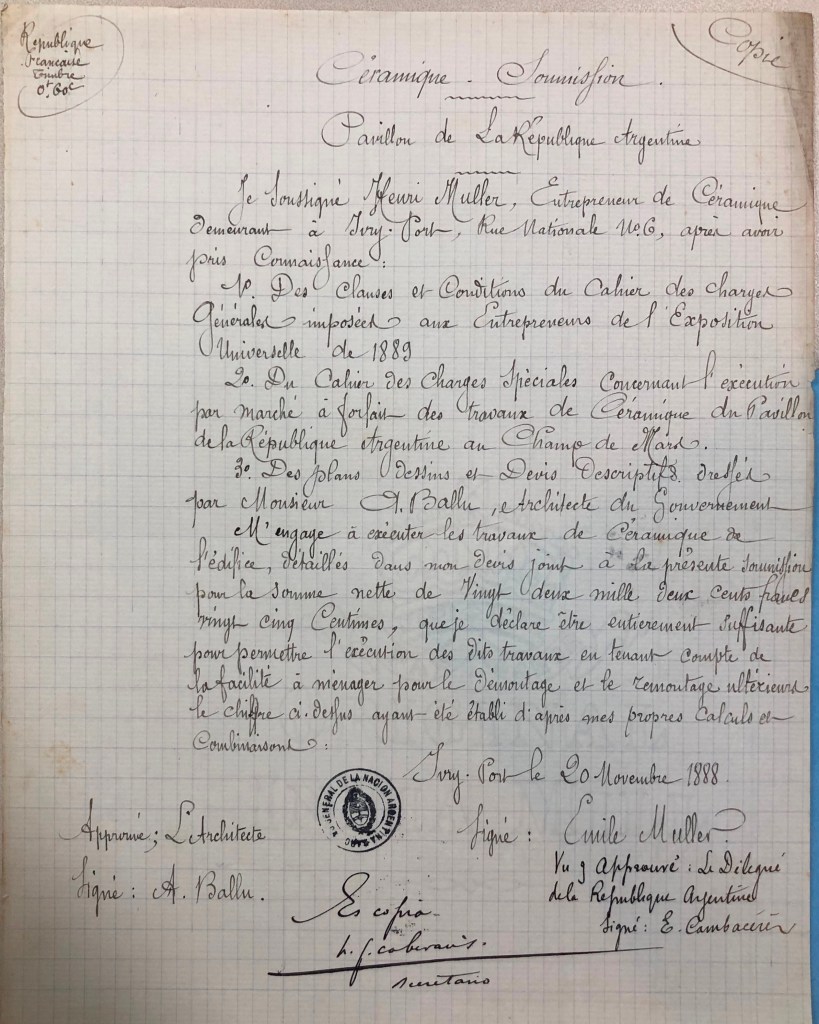 République
Française
Timbre
0f. 60c
Copie
Céramique. Soumission.
Pavillon de La République Argentine
Je Soussigné Henri Muller, Entrepreneur de Céramique
demeurant à Ivry-Port, Rue Nationale No. 6, après avoir
pris Connaissance :
1o. Des Clauses et Conditions du Cahier des charges
Générales imposées aux Entrepreneurs de l'Exposition
Universelle de 1889
2o. Du Cahier des Charges Spéciales Concernant l'exécution
par marché à forfait des travaux de Céramique du Pavillon
de la République Argentine au Champ de Mars.
3o. Des plans dessins et Devis Descriptifs dressés
par Monsieur A. Ballu, Architecte du Gouvernement
M'engage à exécuter les travaux de Céramique de
l'édifice, détaillés dans mon devis joint à La présente soumission
pour la somme nette de Vingt deux mille deux cents francs
vingt cinq Centimes, que je déclare être entièrement suffisante
pour permettre l'exécution des dits travaux en tenant compte de
la facilité à ménager pour le démontage et le remontage ultérieurs
le chiffre ci-dessus ayant été établi d'après mes propres calculs et
Combinaisons :
Ivry-Port le 20 Novembre 1888.
GENERAL DE LA NACION ARGENTINA
Approuvé ; L'Architecte
Signé : A. Ballu.
Signé : Emile Muller.
Vu y Approuvé : Le Délegué
de la République Argentine
Signé : E. Cambacérès
Es copia
secretario